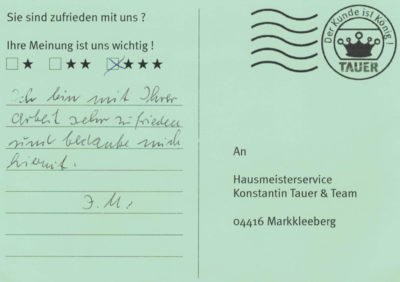 Sie sind zufrieden mit uns ?
Ihre Meinung ist uns wichtig !
Ich bin mit Ihrer
Arbeit sehr zufrieden
und bedanke mich
hiermit.
J. M.
Der Kunde ist König !
TAUER
An
Hausmeisterservice
Konstantin Tauer & Team
04416 Markkleeberg